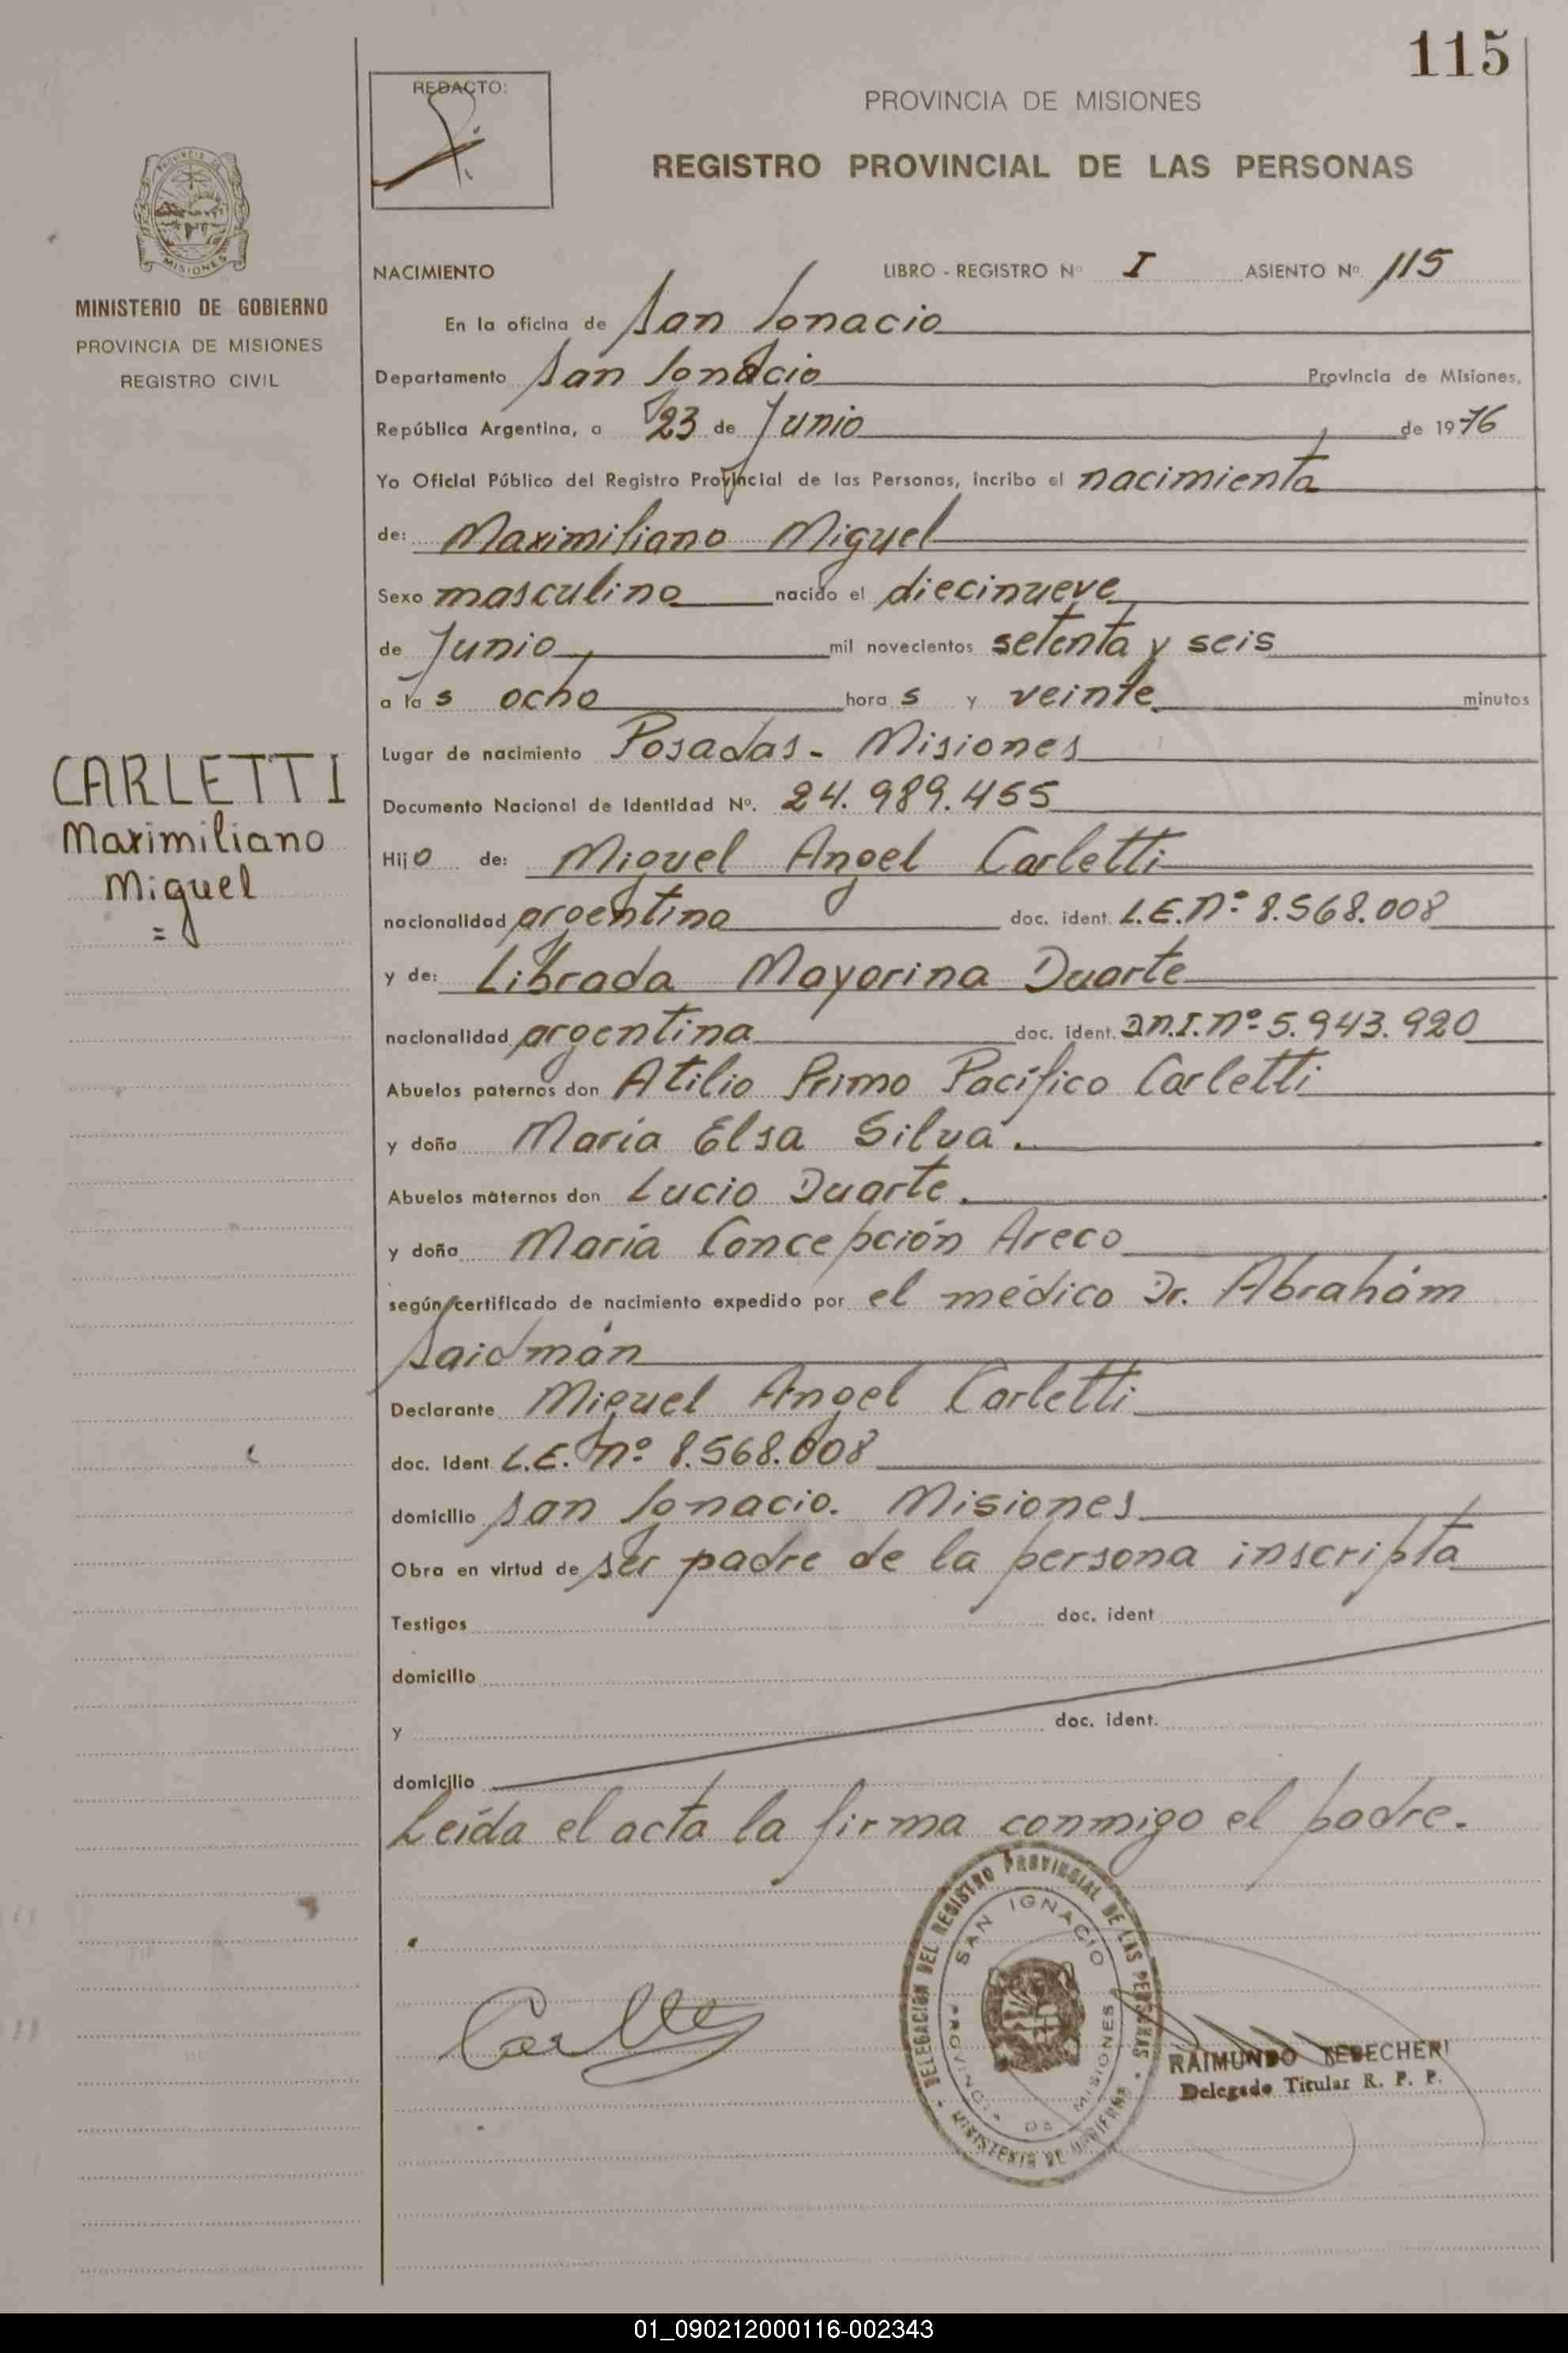 115
REDACTO:
PROVINCIA DE MISIONES
REGISTRO PROVINCIAL DE LAS PERSONAS
MISIONES
MINISTERIO DE GOBIERNO
PROVINCIA DE MISIONES
REGISTRO CIVIL
NACIMIENTO LIBRO - REGISTRO Nº I ASIENTO Nº 115
En la oficina de San Ignacio
Departamento San Ignacio Provincia de Misiones,
República Argentina, a 23 de Junio de 1976
Yo Oficial Público del Registro Provincial de las Personas, incribo el nacimiento
de: Maximiliano Miguel
Sexo masculino nacido el diecinueve
de Junio mil novecientos setenta y seis
a las ocho horas y veinte minutos
Lugar de nacimiento Posadas - Misiones
Documento Nacional de Identidad Nº. 24.989.455
CARLETTI
Maximiliano
Miguel
=
Hijo de: Miguel Angel Carletti
nacionalidad argentina doc. ident. L.E.Nº 8.568.008
y de: Librada Mayorina Duarte
nacionalidad argentina doc. ident. D.N.I.Nº 5.943.920
Abuelos paternos don Atilio Primo Pacífico Carletti
y doña María Elsa Silva.
Abuelos maternos don Lucio Duarte.
y doña María Concepción Areco
según certificado de nacimiento expedido por el médico Dr. Abrahám
Saidmán
Declarante Miguel Angel Carletti
doc. Ident. L.E. Nº 8.568.008
domicilio San Ignacio. Misiones
Obra en virtud de ser padre de la persona inscripta
Testigos doc. ident
domicilio
y doc. ident.
domicilio
Leída el acta la firma conmigo el padre.
DELEGACIÓN DEL REGISTRO PROVINCIAL DE LAS PERSONAS
SAN IGNACIO
PROVINCIA DE MISIONES
MINISTERIO DE GOBIERNO
RAIMUNDO TEBECHERI
Delegado Titular R. P. P.
01_090212000116-002343